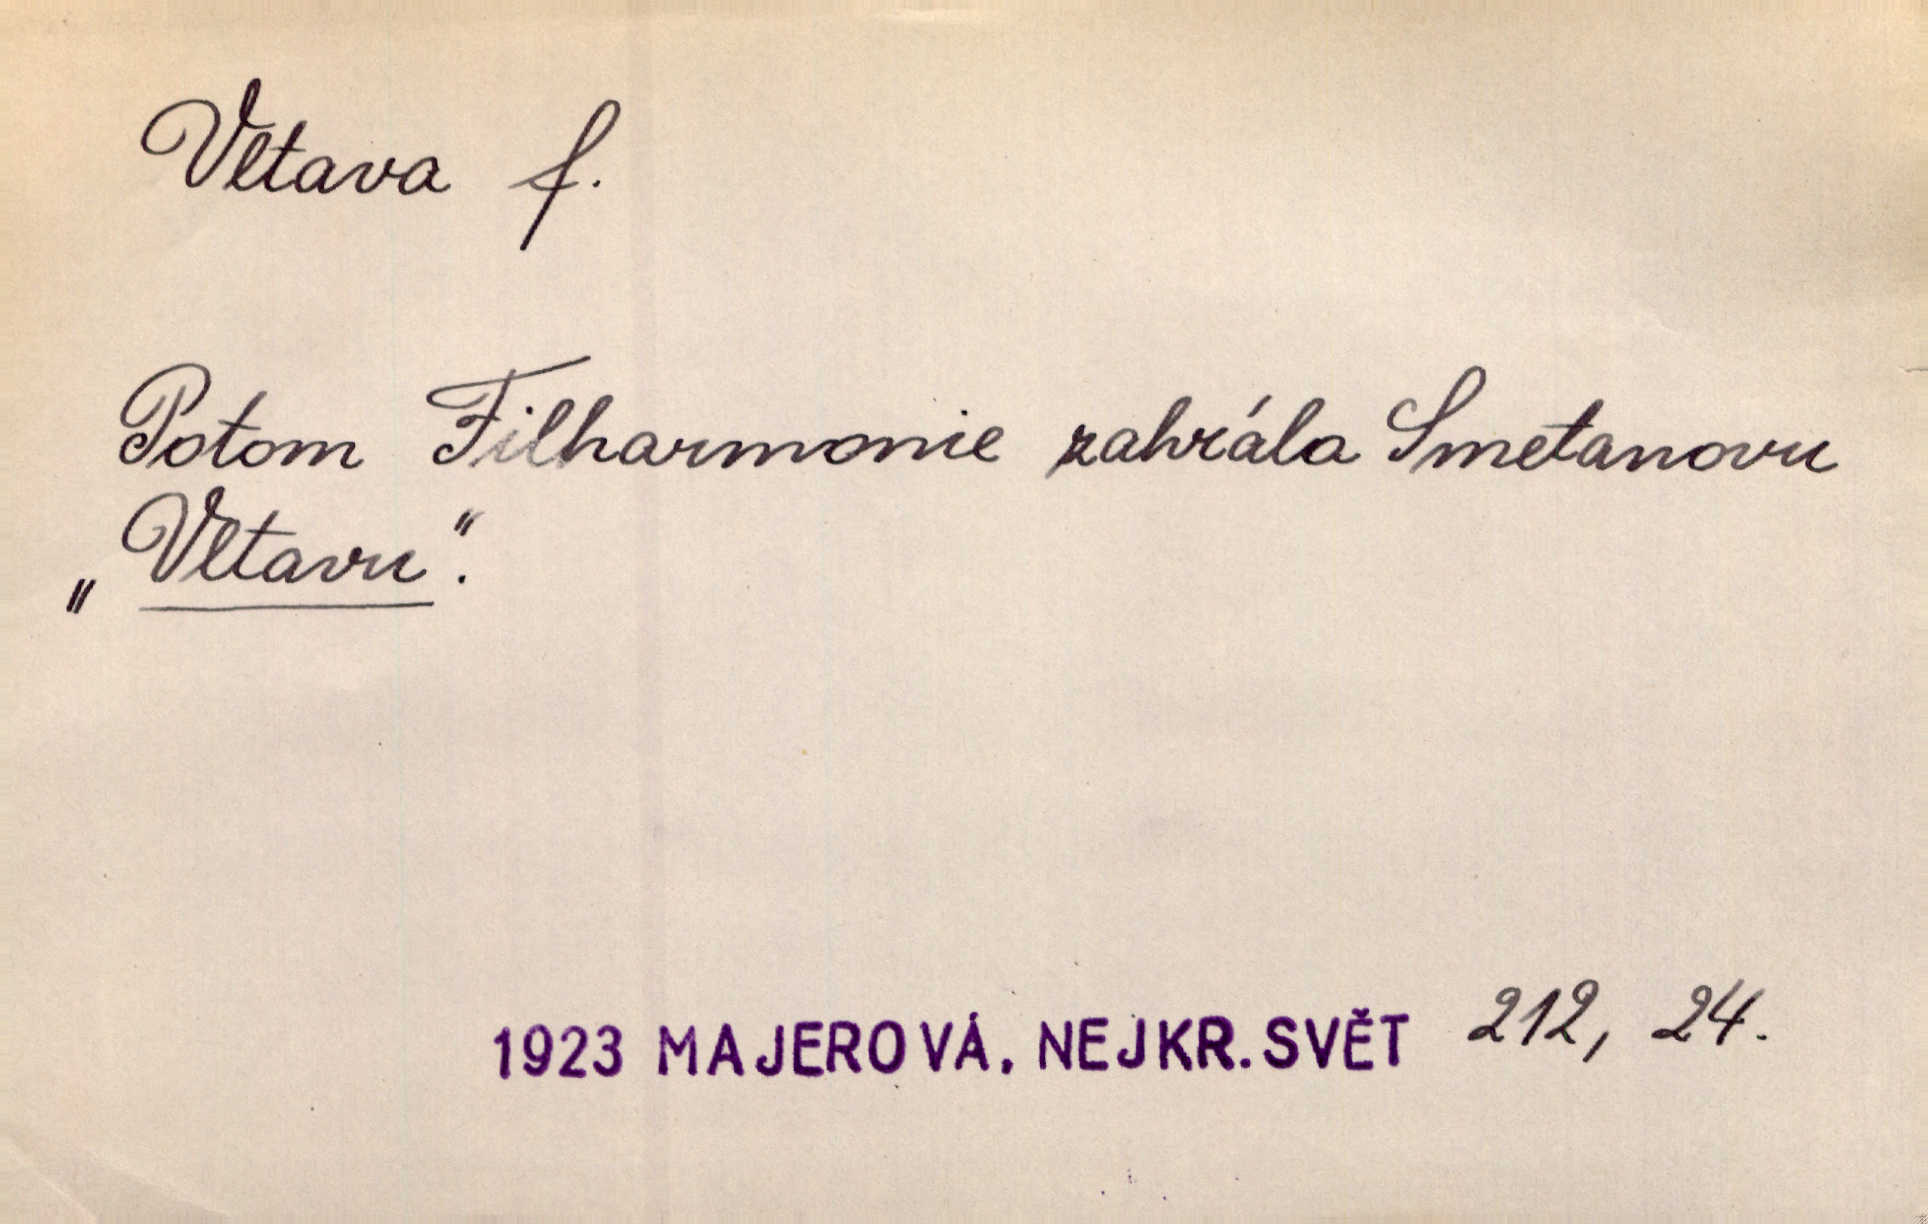 Vltava f.
Potom Filharmonie zahrála Smetanovu
„Vltavu“.
1923 MAJEROVÁ, NEJKR. SVĚT 212, 24.